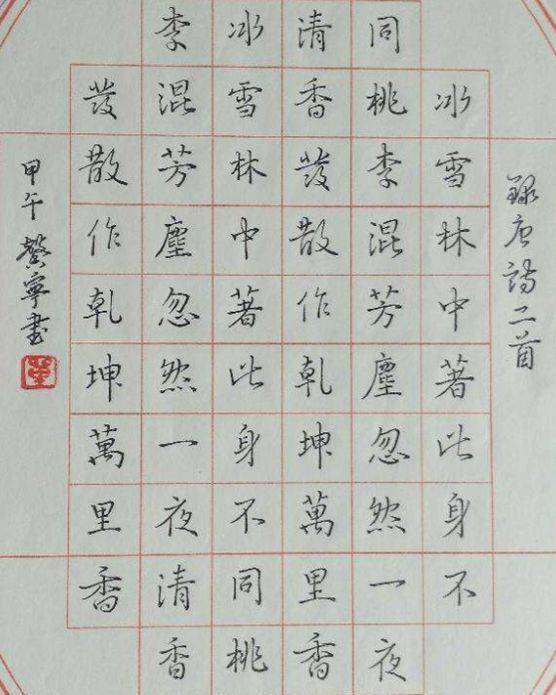 録唐詩二首
冰雪林中著此身不
同桃李混芳塵忽然一夜
清香發散作乾坤萬里香
冰雪林中著此身不同桃
李混芳塵忽然一夜清香
發散作乾坤萬里香
甲午寧書